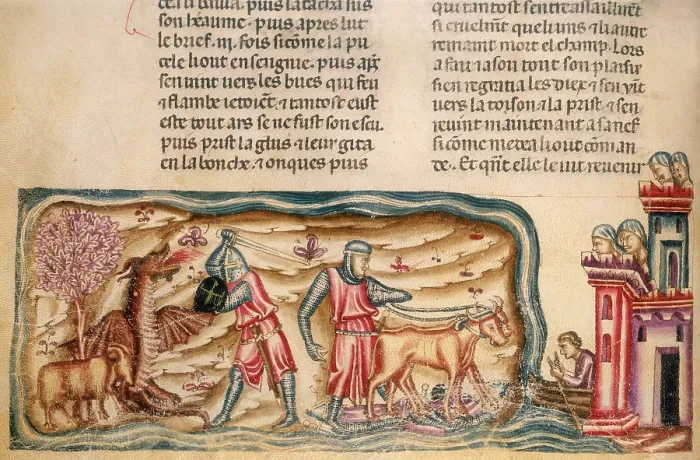 son heaume. puis apres lut
le brief .iij. fois sicōme la pu
cele li out enseignie. puis apꝛ̄
sen uint uers les bues qui feu
⁊ flambe ietoiēt. ⁊ tantost eust
este tout ars se ne fust son escu.
puis prist la glus ⁊ leur gita
en la bouche. ⁊ onques puis
qui tantost sentreassaillirēt
si cruelmēt quel uns ne li autre
remaint mort el chāmp. Lors
a fait iason tout son plaisir
sien regratia les diex ⁊ sen uīt
uers la toison ⁊ la prist ⁊ sen
reuint maintenant a sauf
si cōme medea li out cōman
de. Et qn̄t elle le uit reuenir